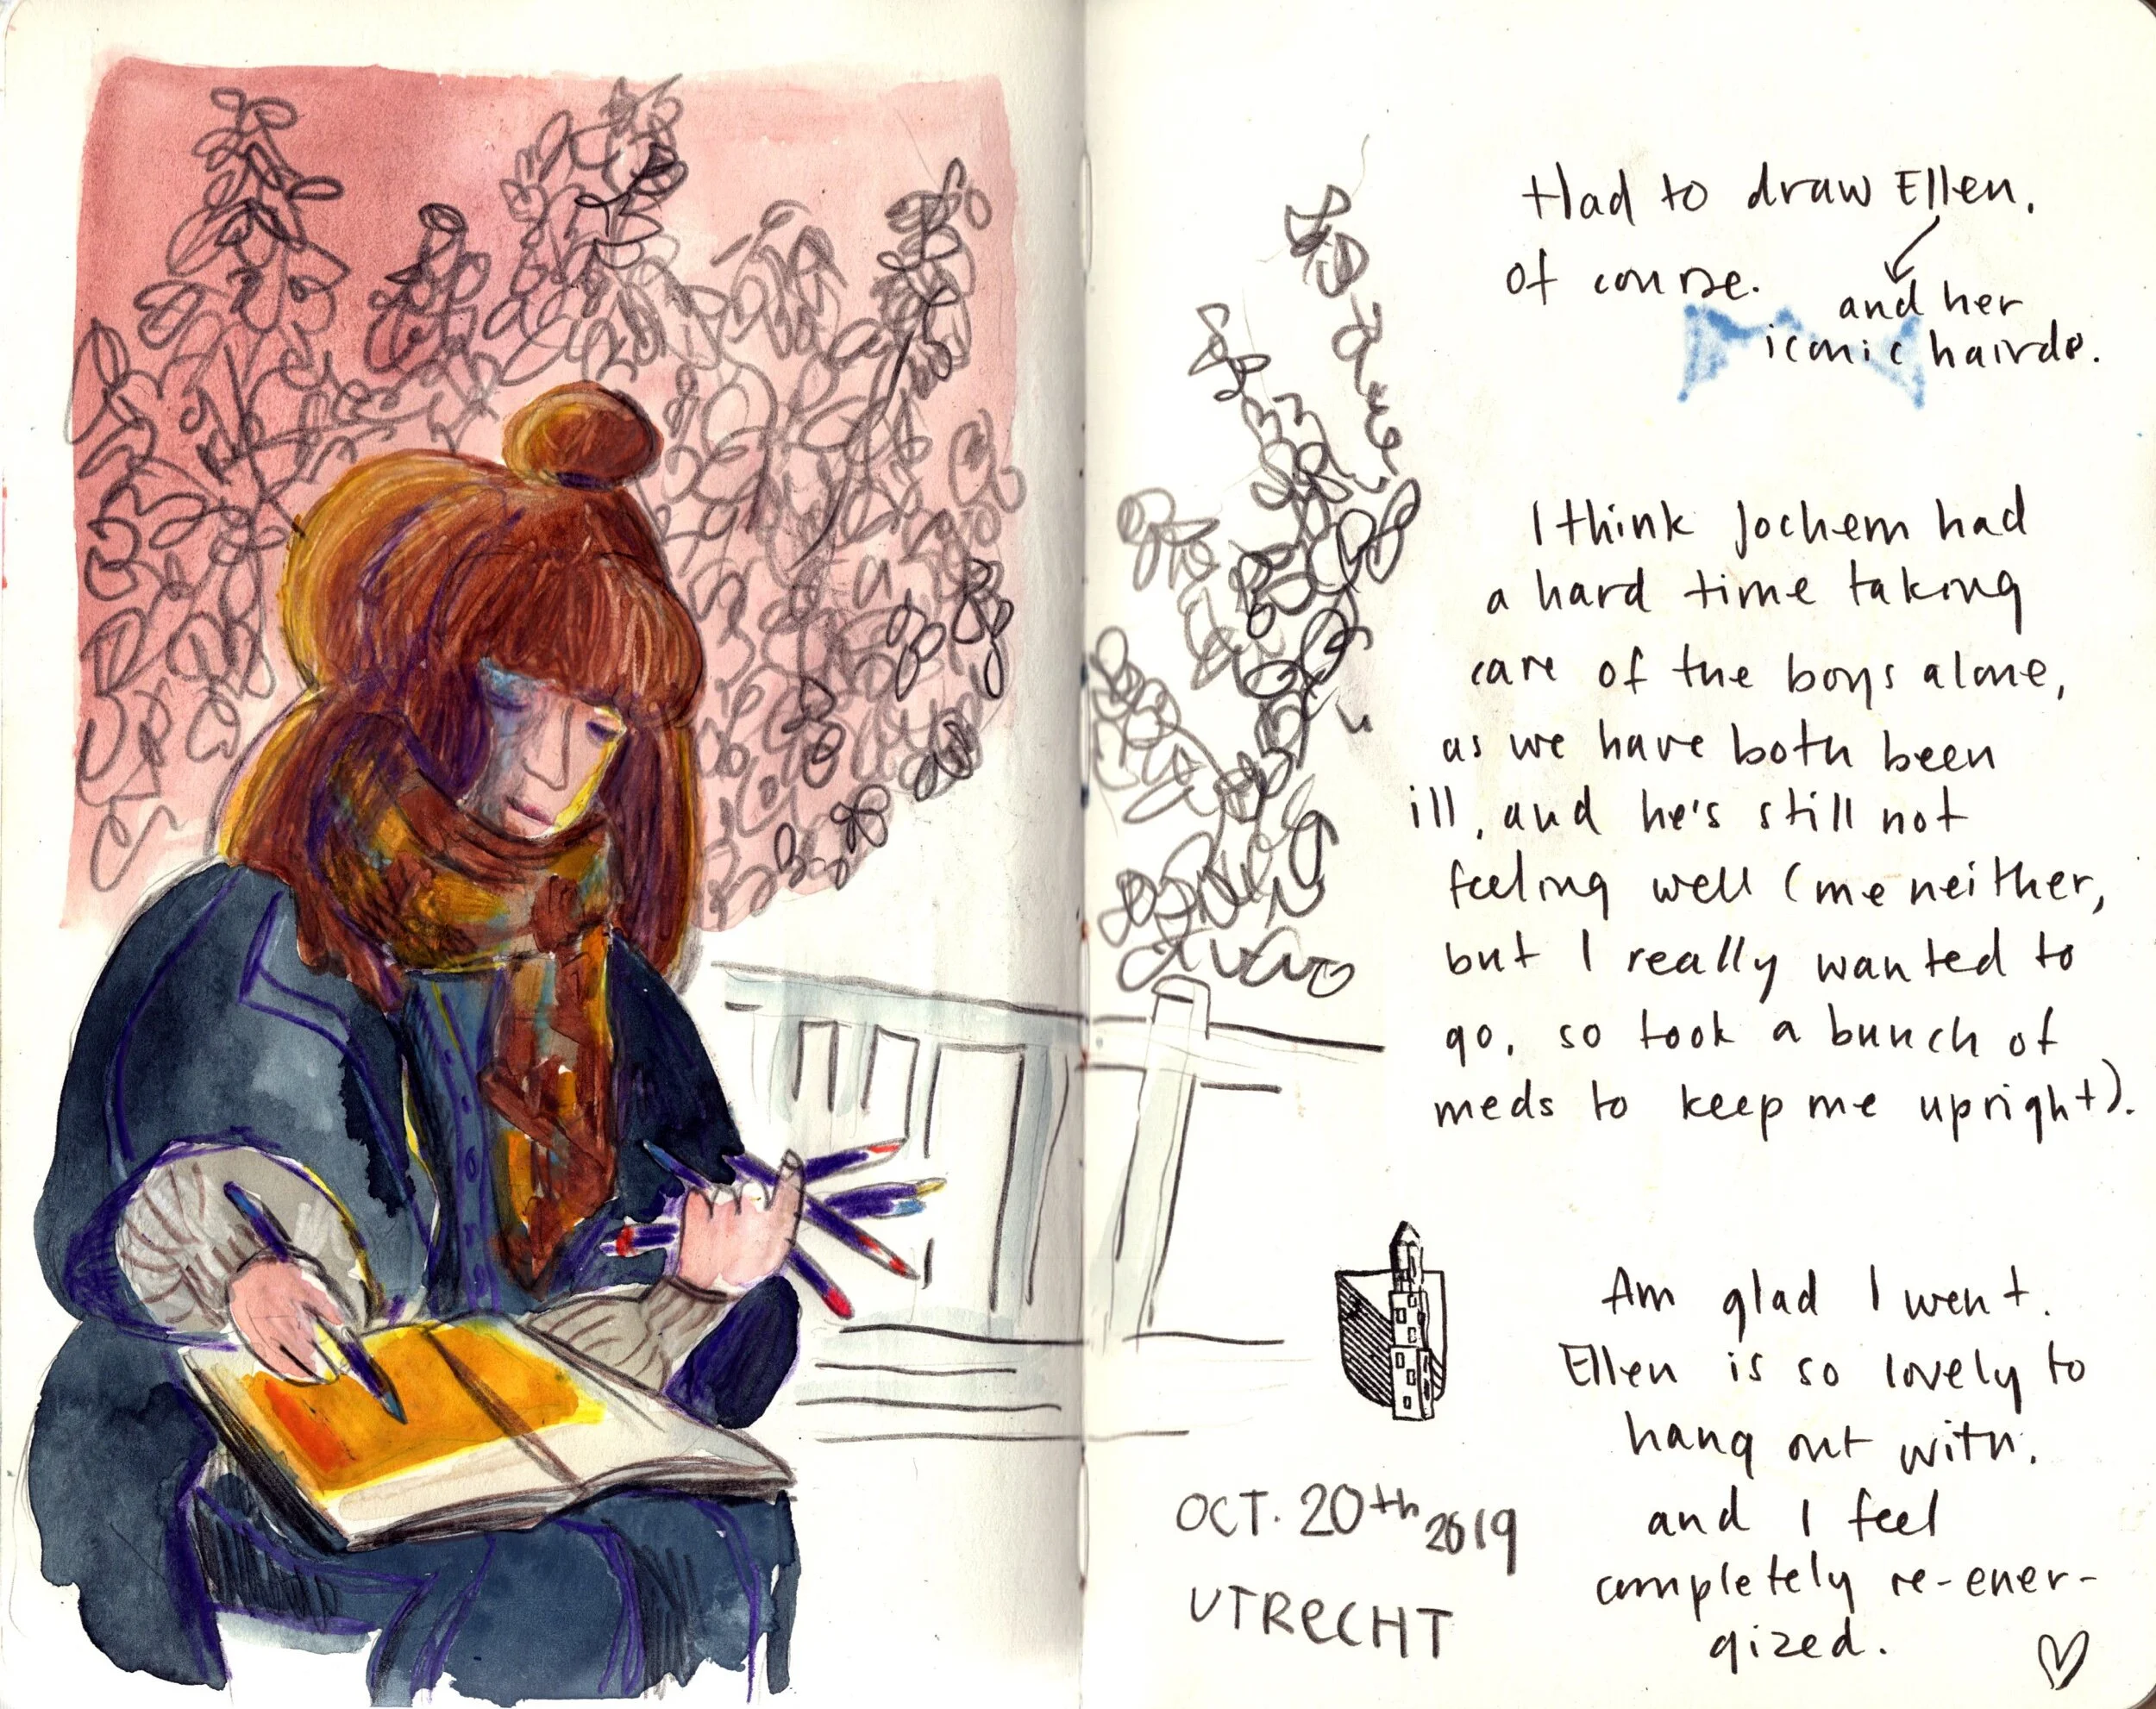 Had to draw Ellen.
of course.
and her
iconic hairdo.
I think Jochem had
a hard time taking
care of the boys alone,
as we have both been
ill, and he's still not
feeling well (me neither,
but I really wanted to
go, so took a bunch of
meds to keep me upright).
Am glad I went.
Ellen is so lovely to
hang out with.
and I feel
completely re-ener-
gized.
OCT. 20th 2019
UTRECHT